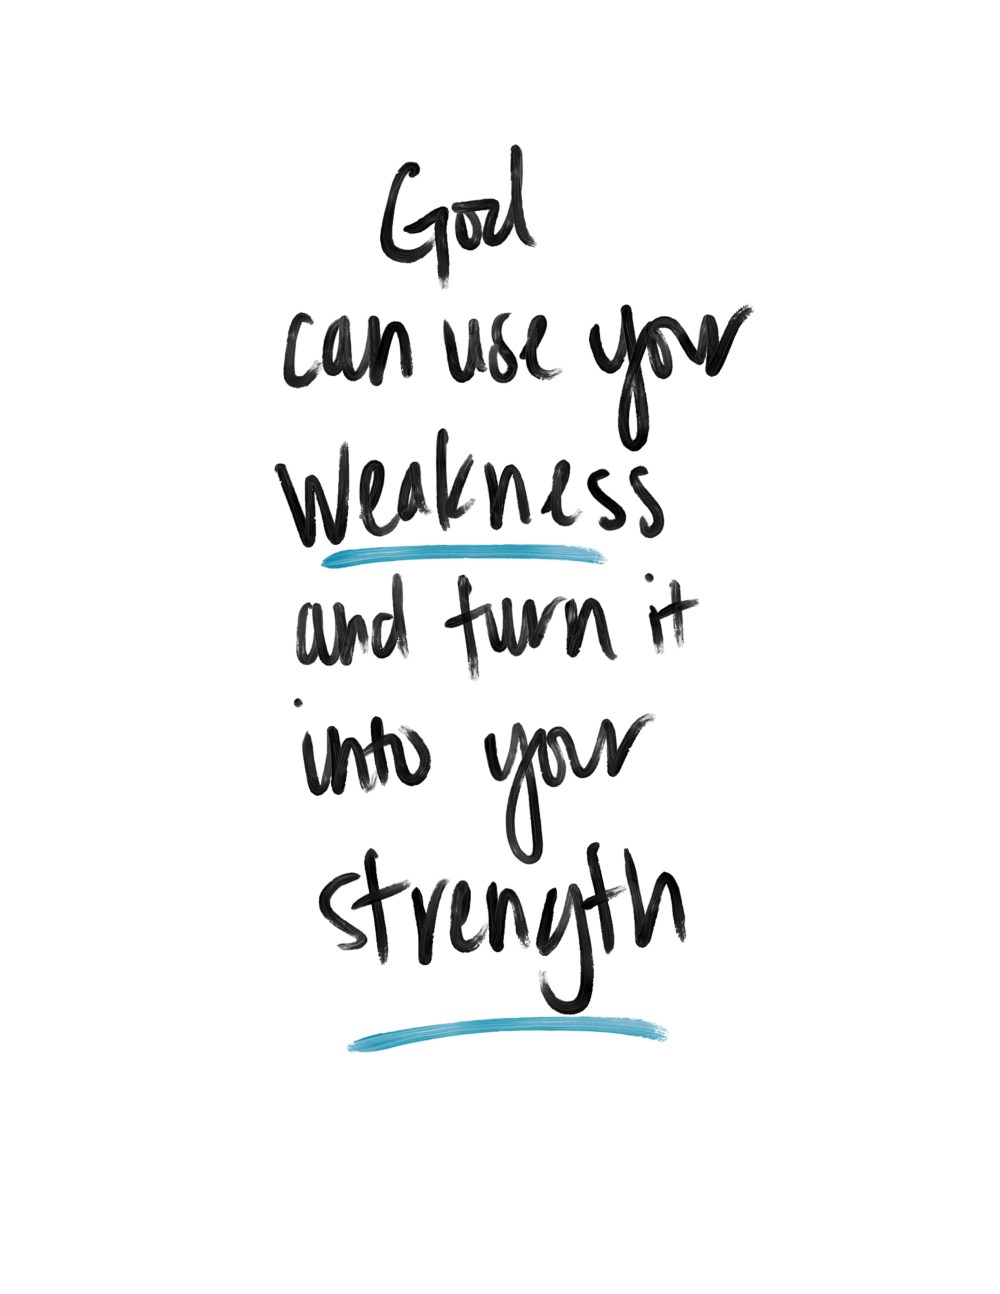 God
can use your
weakness
and turn it
into your
strength